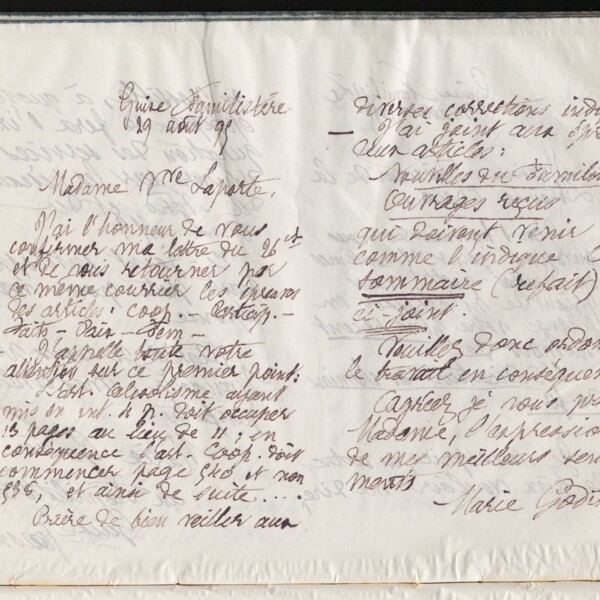 Guise Familistère
29 août 95
Madame Vve Laporte,
J'ai l'honneur de vous
confirmer ma lettre du 26 ct
et de vous retourner par
ce même courrier les épreuves
des articles: coop. - Particip. -
Faits - Paix - Fem -
J'appelle toute votre
attention sur ce premier point:
L'art. alcoolisme ayant
mis en int. 4 p. doit occuper
13 pages au lieu de 11; en
conséquence l'art. Coop. doit
commencer page 540 et non
538, et ainsi de suite....
Prière de bien veiller aux
diverses corrections indi
— J'ai joint aux épr
aux articles:
Nouvelles du Familis
Ouvrages reçus
qui doivent venir
comme l'indique l
sommaire (refait)
ci-joint.
Veuillez donc ordon
le travail en conséquen
Agréez je vous pr
Madame, l'expressio
de mes meilleurs sen
ments
Marie Godin